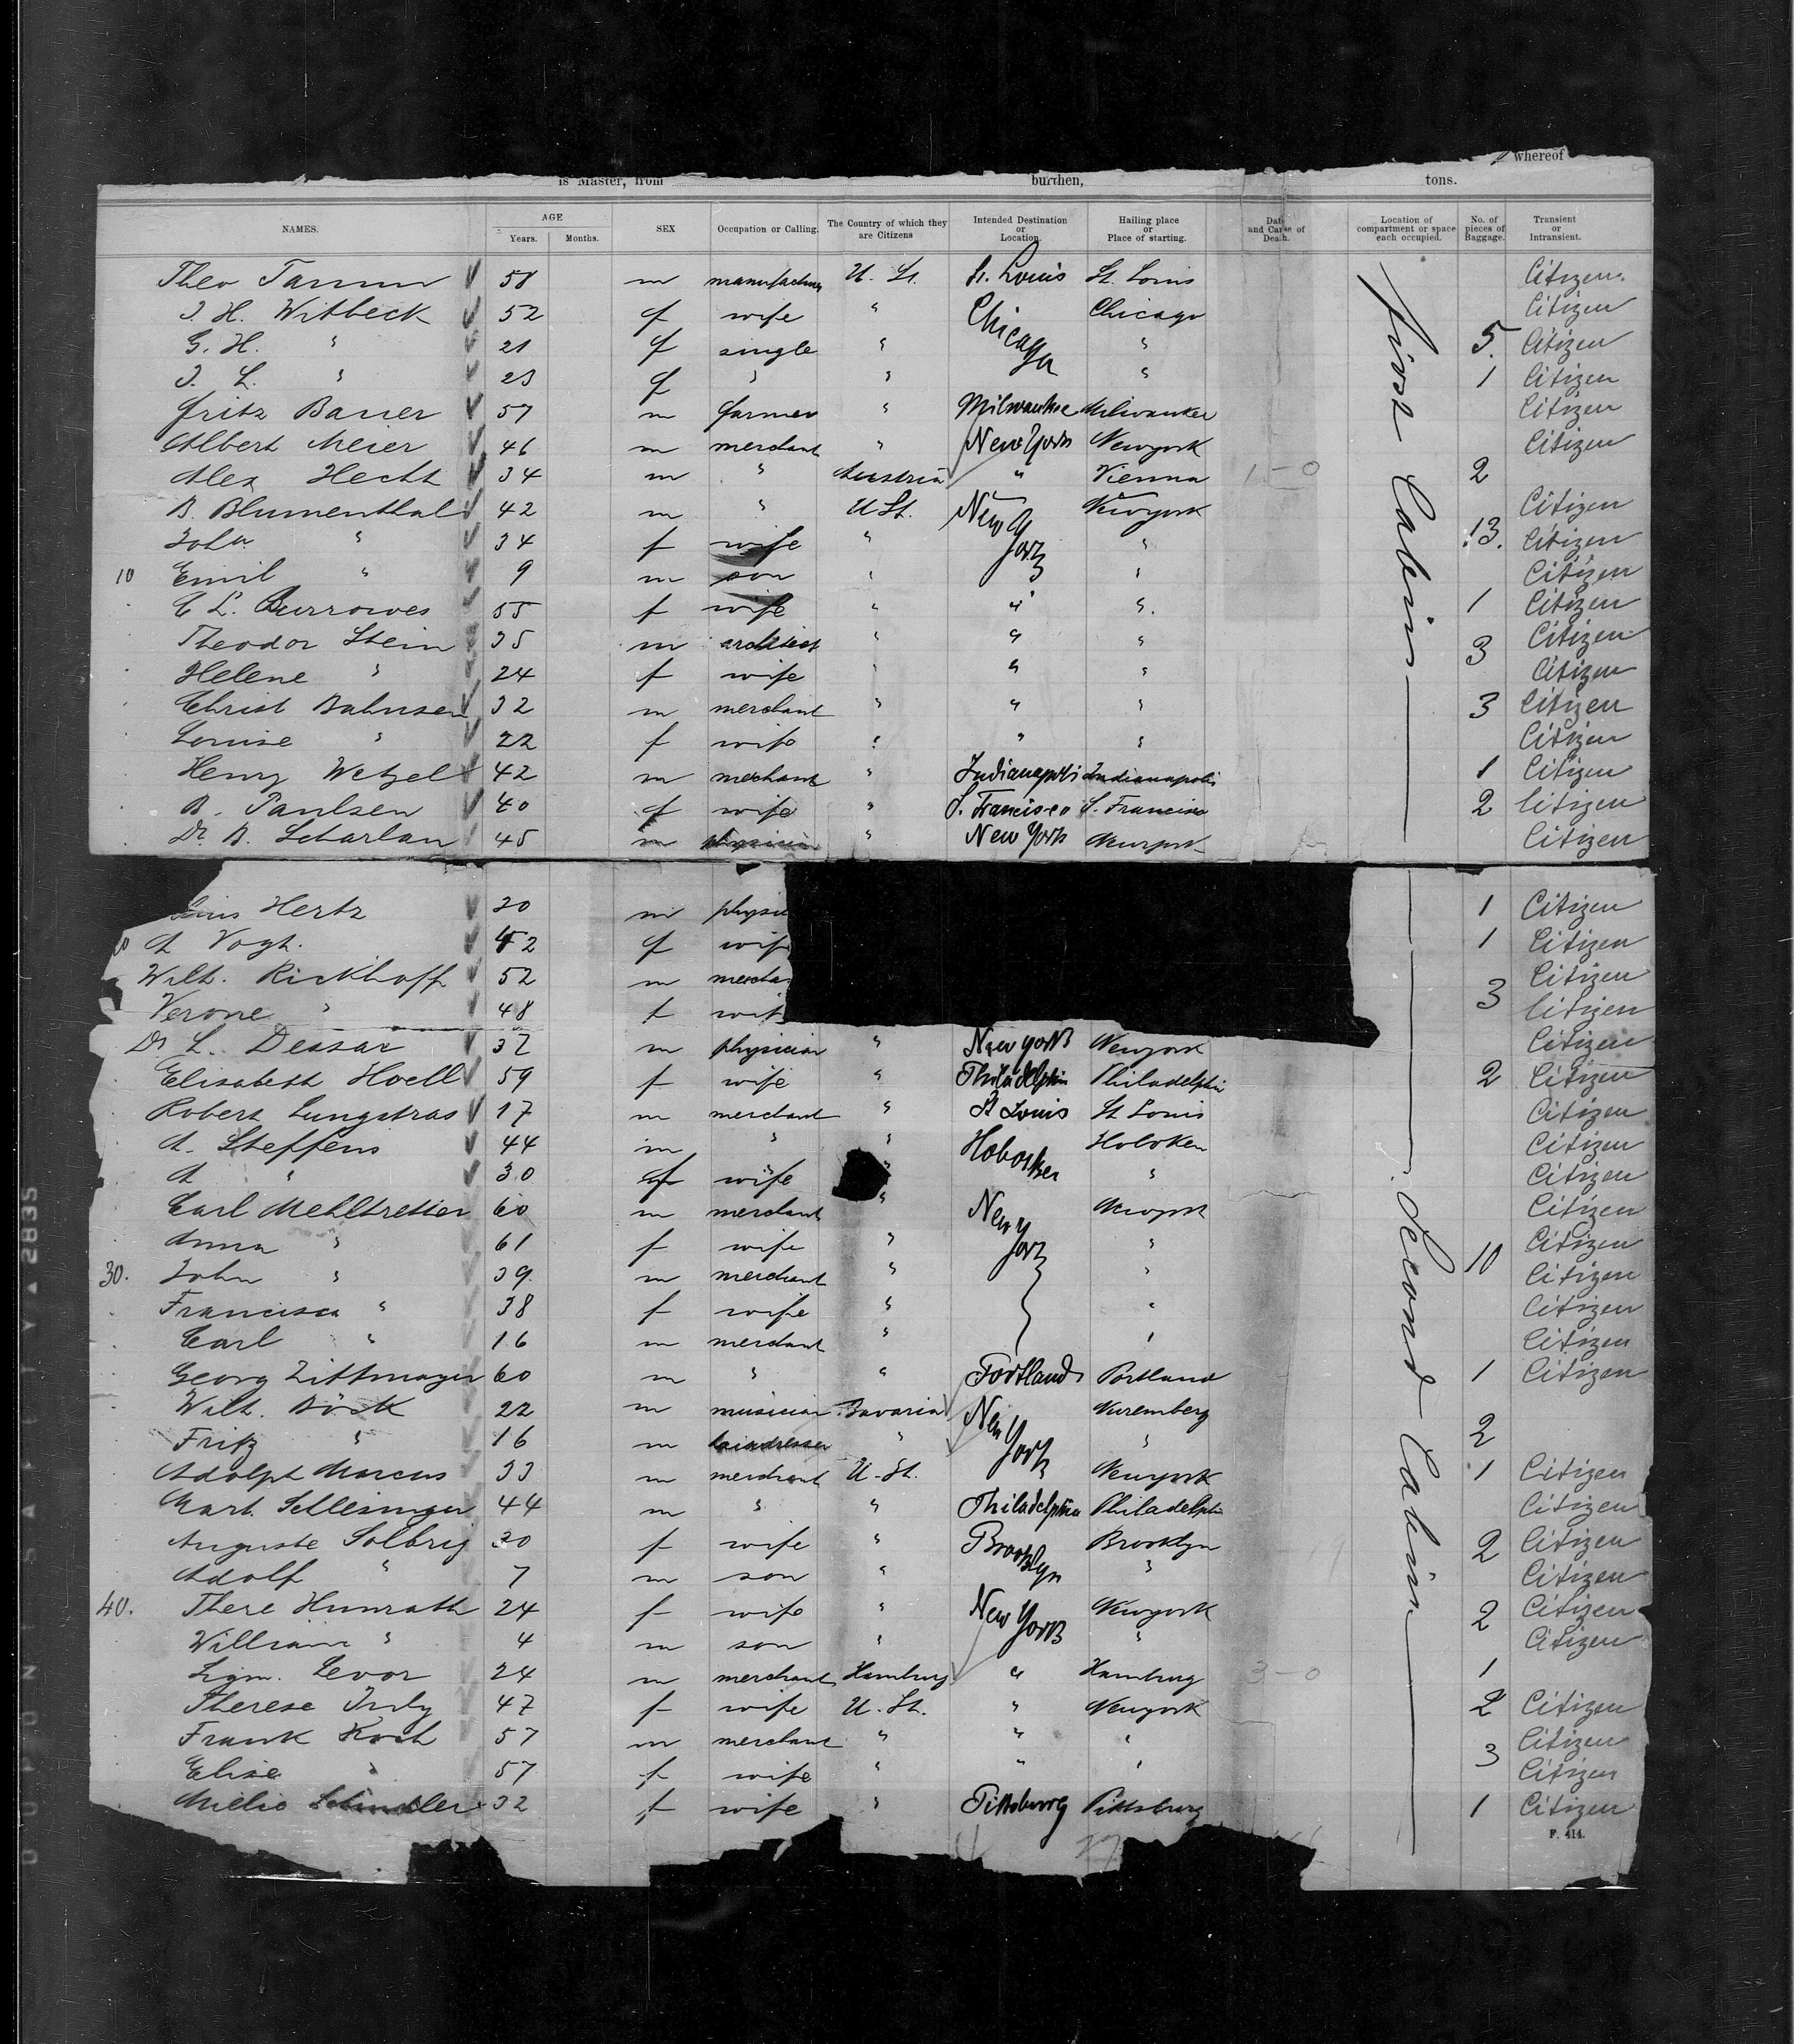 whereof
is Master, from burthen, tons.
NAMES. AGE Years. Months. SEX Occupation or Calling. The Country of which they are Citizens Intended Destination or Location. Hailing place or Place of starting. Date and Cause of Death. Location of compartment or space each occupied. No. of pieces of Baggage. Transient or Intransient.
Theo 58 m U. St. St. Louis St. Louis First Cabin Citizen
J. H. Witbeck 52 f wife " Chicago Chicago Citizen
G. H. " 21 f single " " 5. Citizen
J. L. " 23 f " " " 1 Citizen
Fritz Bauer 57 m farmer " Milwaukee Milwaukee Citizen
Albert Meier 46 m merchant " New York Newyork Citizen
Alex Hecht 34 m " Austria " Vienna 1-0 2
B. Blumenthal 42 m " U St. New York Newyork Citizen
" 34 f wife " " 13. Citizen
10 Emil " 9 m son " " Citizen
C L. Burrowes 55 f wife " " " 1 Citizen
Theodor Stein 35 m architect " " " 3 Citizen
Helene " 24 f wife " " " Citizen
Christ Bahnsen 32 m merchant " " " 3 Citizen
Louise " 22 f wife " " " Citizen
Henry Wetzel 42 m merchant " Indianapolis Indianapolis 1 Citizen
B. Paulsen 40 f wife " S. Francisco S. Francisco 2 Citizen
Dr. B. Scharlau 45 m physician " New York Newyork Citizen
Hertz 30 m 1 Citizen
A Vogt. 42 f wife 1 Citizen
Wilh. Rickhoff 52 m 3 Citizen
Verone " 48 f Citizen
Dr L. Dessar 37 m physician " New York Newyork Second Cabin Citizen
Elisabeth Hoell 59 f wife " Philadelphia Philadelphia 2 Citizen
Robert Lungstras 17 m merchant " St Louis St Louis Citizen
A. Steffens 44 m " " Hoboken Hoboken Citizen
A " 30 f wife " " Citizen
Carl Mehltretter 60 m merchant " New York Newyork Citizen
Anna " 61 f wife " " 10 Citizen
30. John " 39 m merchant " " Citizen
Francisca " 38 f wife " " Citizen
Carl " 16 m merchant " " Citizen
Georg Zittmayer 60 m " " Portland Portland 1 Citizen
Wilh. Böck 22 m musician Bavaria New York Nuremberg 2
Fritz " 16 m " "
Adolph Marcus 33 m merchant U. St. Newyork 1 Citizen
Mart. Schlesinger 44 m " " Philadelphia Philadelphia Citizen
Auguste Solbrig 30 f wife " Brooklyn Brooklyn 2 Citizen
Adolf " 7 m son " " Citizen
40. There Hunrath 24 f wife " New York Newyork 2 Citizen
William " 4 m son " " Citizen
Sigm. Levor 24 m merchant Hamburg " Hamburg 3-0 1
Therese 47 f wife U. St. " Newyork 2 Citizen
Frank Koch 57 m merchant " " " 3 Citizen
Elise " 57 f wife " " " Citizen
Millie 32 f wife " Pittsburg Pittsburg 1 Citizen
F. 414.